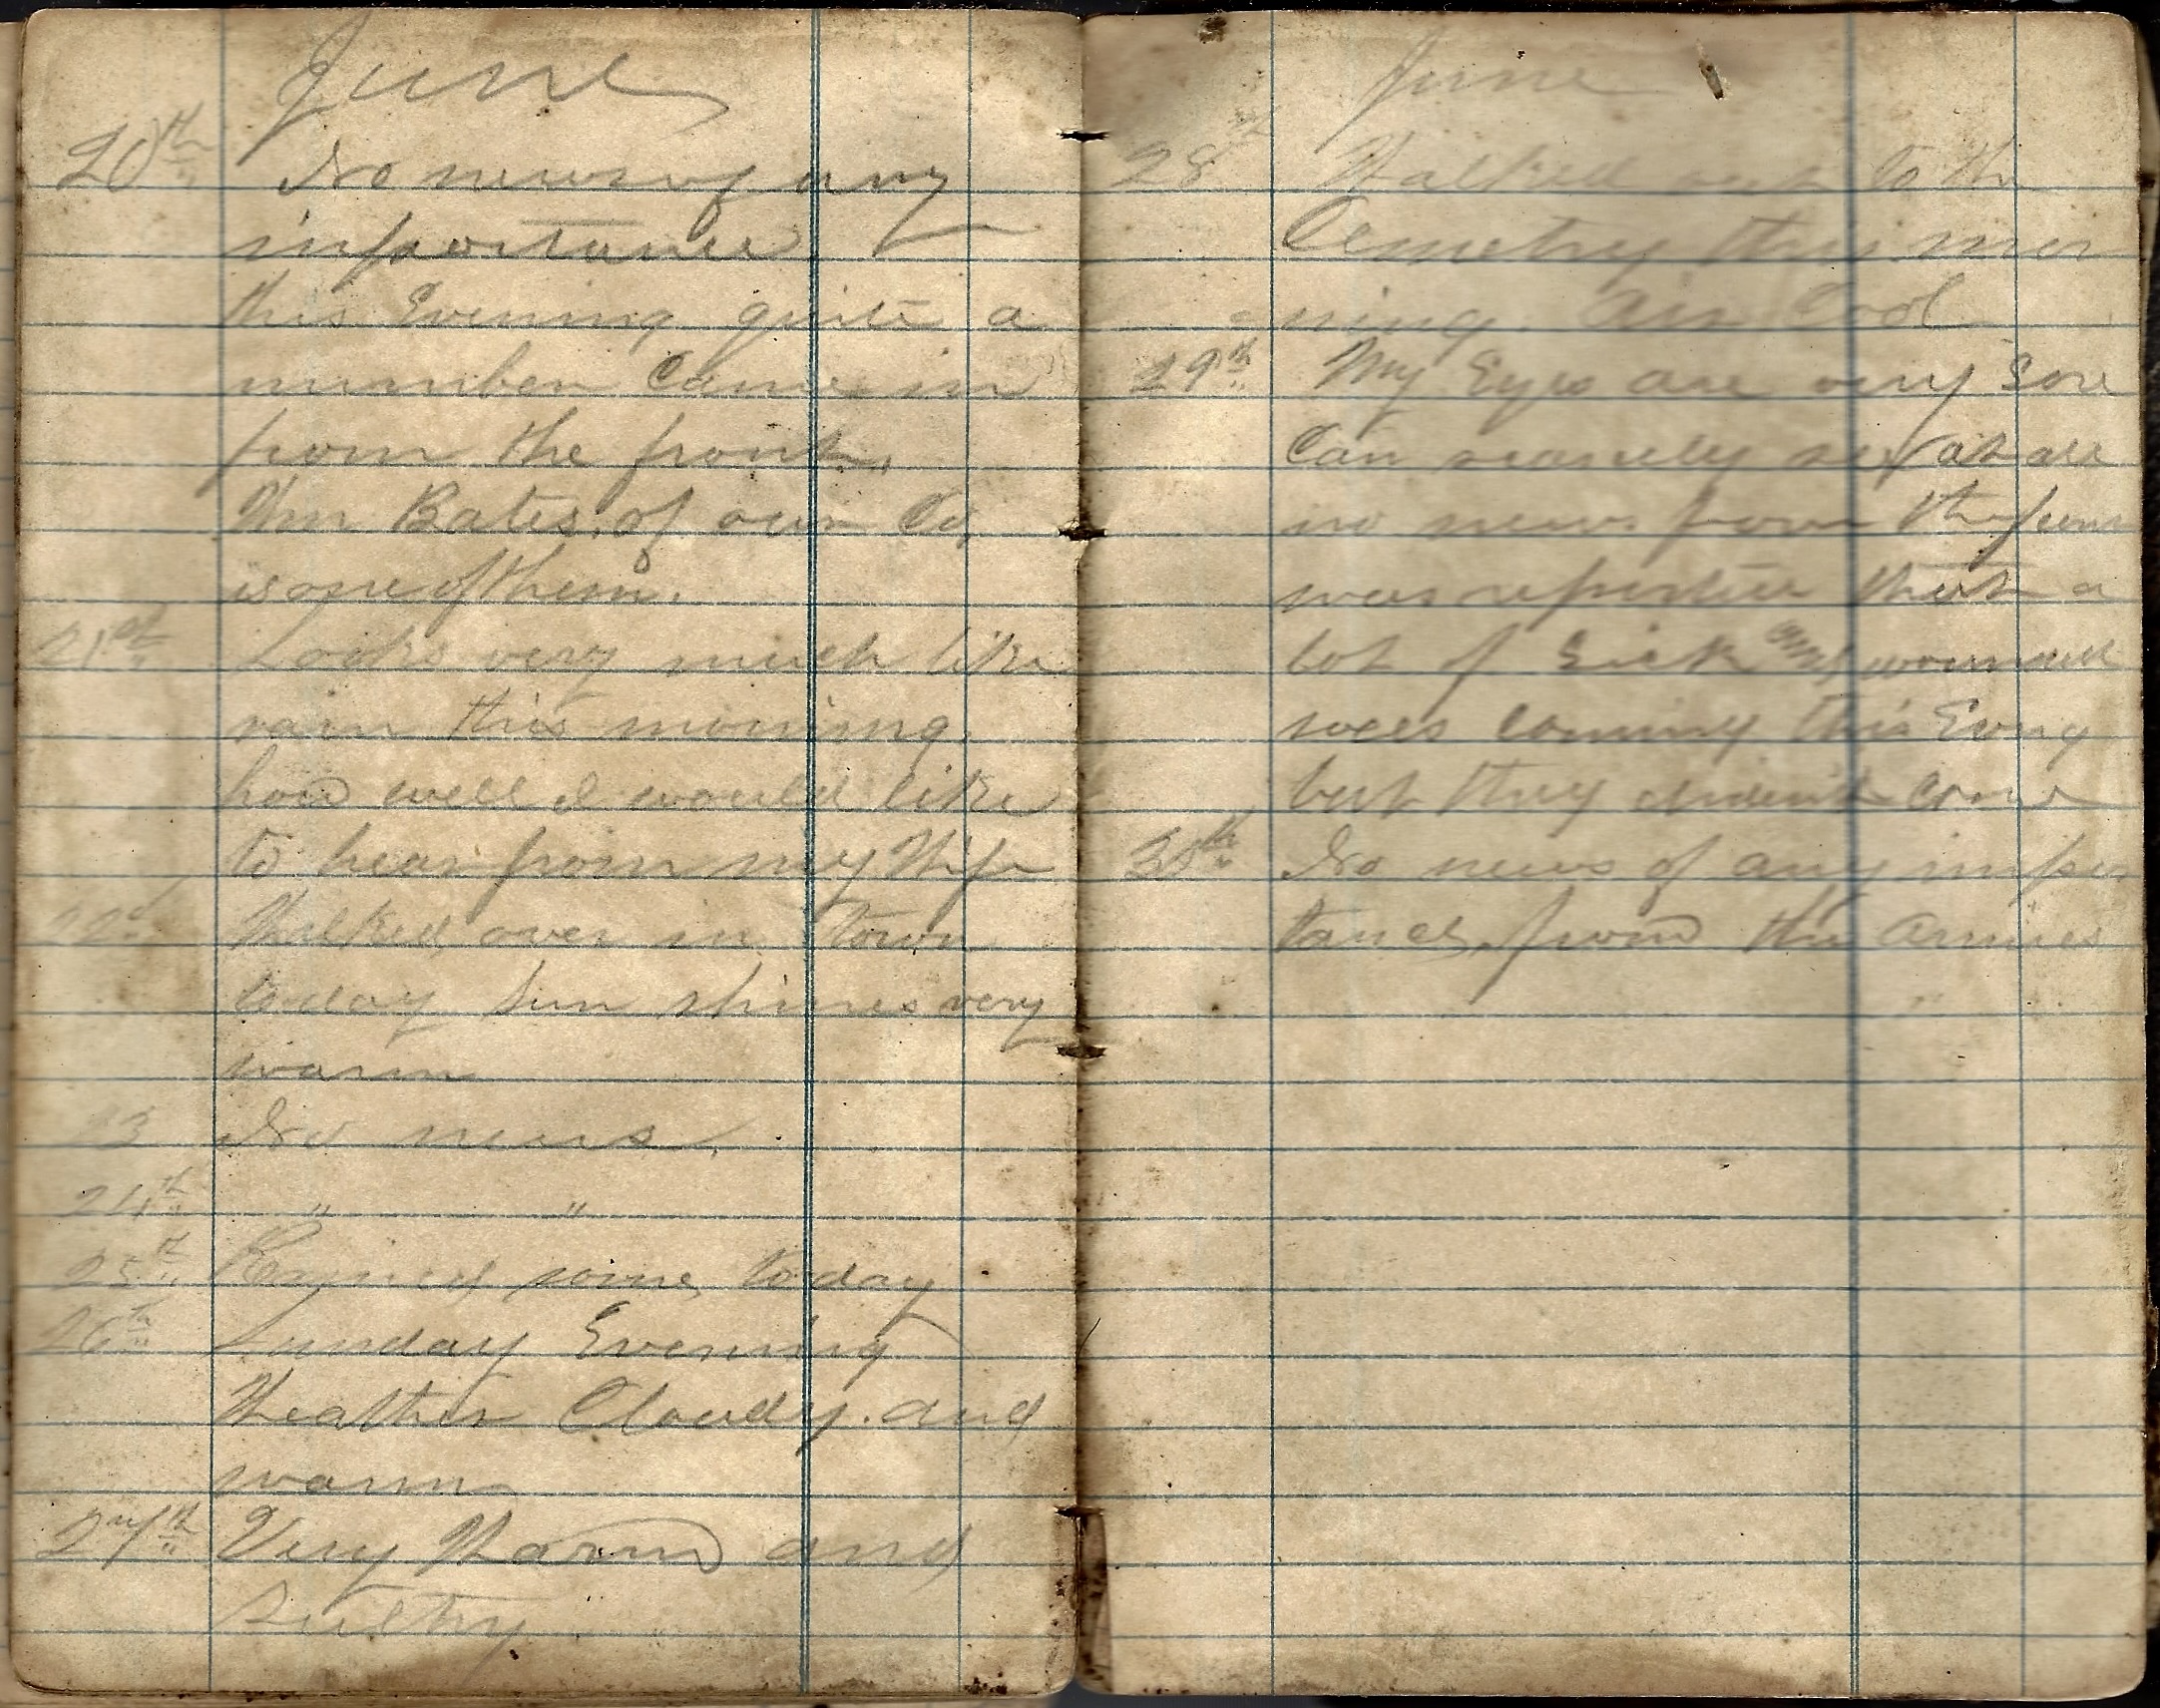 June
20th No news of any
importance
this Evening quite a
number Came in
from the front.
Wm Bates, of our Co,
is one of them.
21st Looks very much like
rain this morning.
how well I would like
to hear from my Wife
22d Walked over in town
to day Sun shines very
warm
23 No news.
24th " "
25th Rained some to day
26th Sunday Evening
Weather Cloudy. and
warm
27th Very Warm and
Sultry
June
28th Walked out to the
Cemetry this mor
ning Air Cool
29th My Eyes are very Sore
Can scarcely see at all
no news from the
was reported that a
lot of Sick and wounded
was coming this Evng
but they didint come
30th No news of any impor
tance, from the Armies